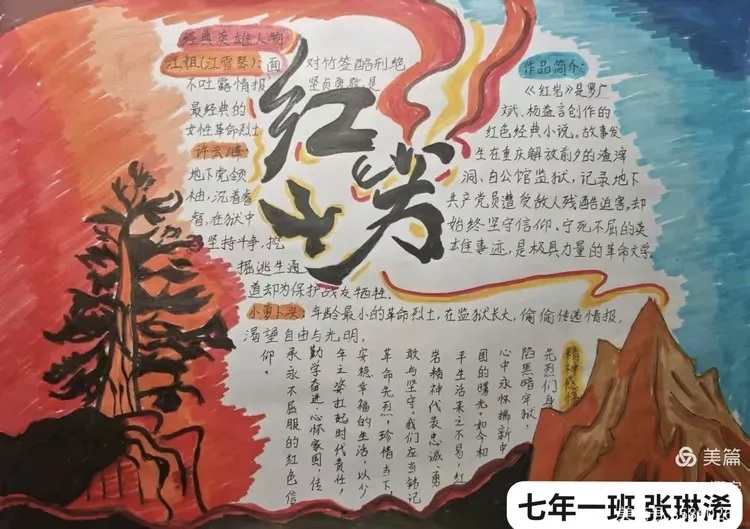 红岩
经典英雄人物
江姐(江雪琴):面对竹签酷刑绝
不吐露情报 坚贞勇敢,是
最经典的
女性革命烈士
许云峰:
地下党领
袖,沉着睿
智,在狱中
坚持斗争,挖
掘逃生通
道却为保护战友牺牲.
小萝卜头:年龄最小的革命烈士,在监狱长大,偷偷传递情报,
渴望自由与光明.
作品简介:
《红岩》是罗广
斌、杨益言创作的
红色经典小说。故事发
生在重庆解放前夕的渣滓
洞、白公馆监狱,记录地下
共产党员遭受敌人残酷迫害,却
始终坚守信仰、守死不屈的英
雄事迹,是极具力量的革命文学。
精神感悟
先烈们身
陷黑暗牢狱,
心中永怀揣新中
国的曙光。如今和
平生活来之不易,红
岩精神代表忠诚、勇
敢与坚守。我们应当铭记
革命先烈,珍惜当下
安稳幸福的生活,以少
年之姿扛起时代责任,
勤学奋进、心怀家国,传
承永不屈服的红色信
仰。
美篇
七年一班 张琳浠